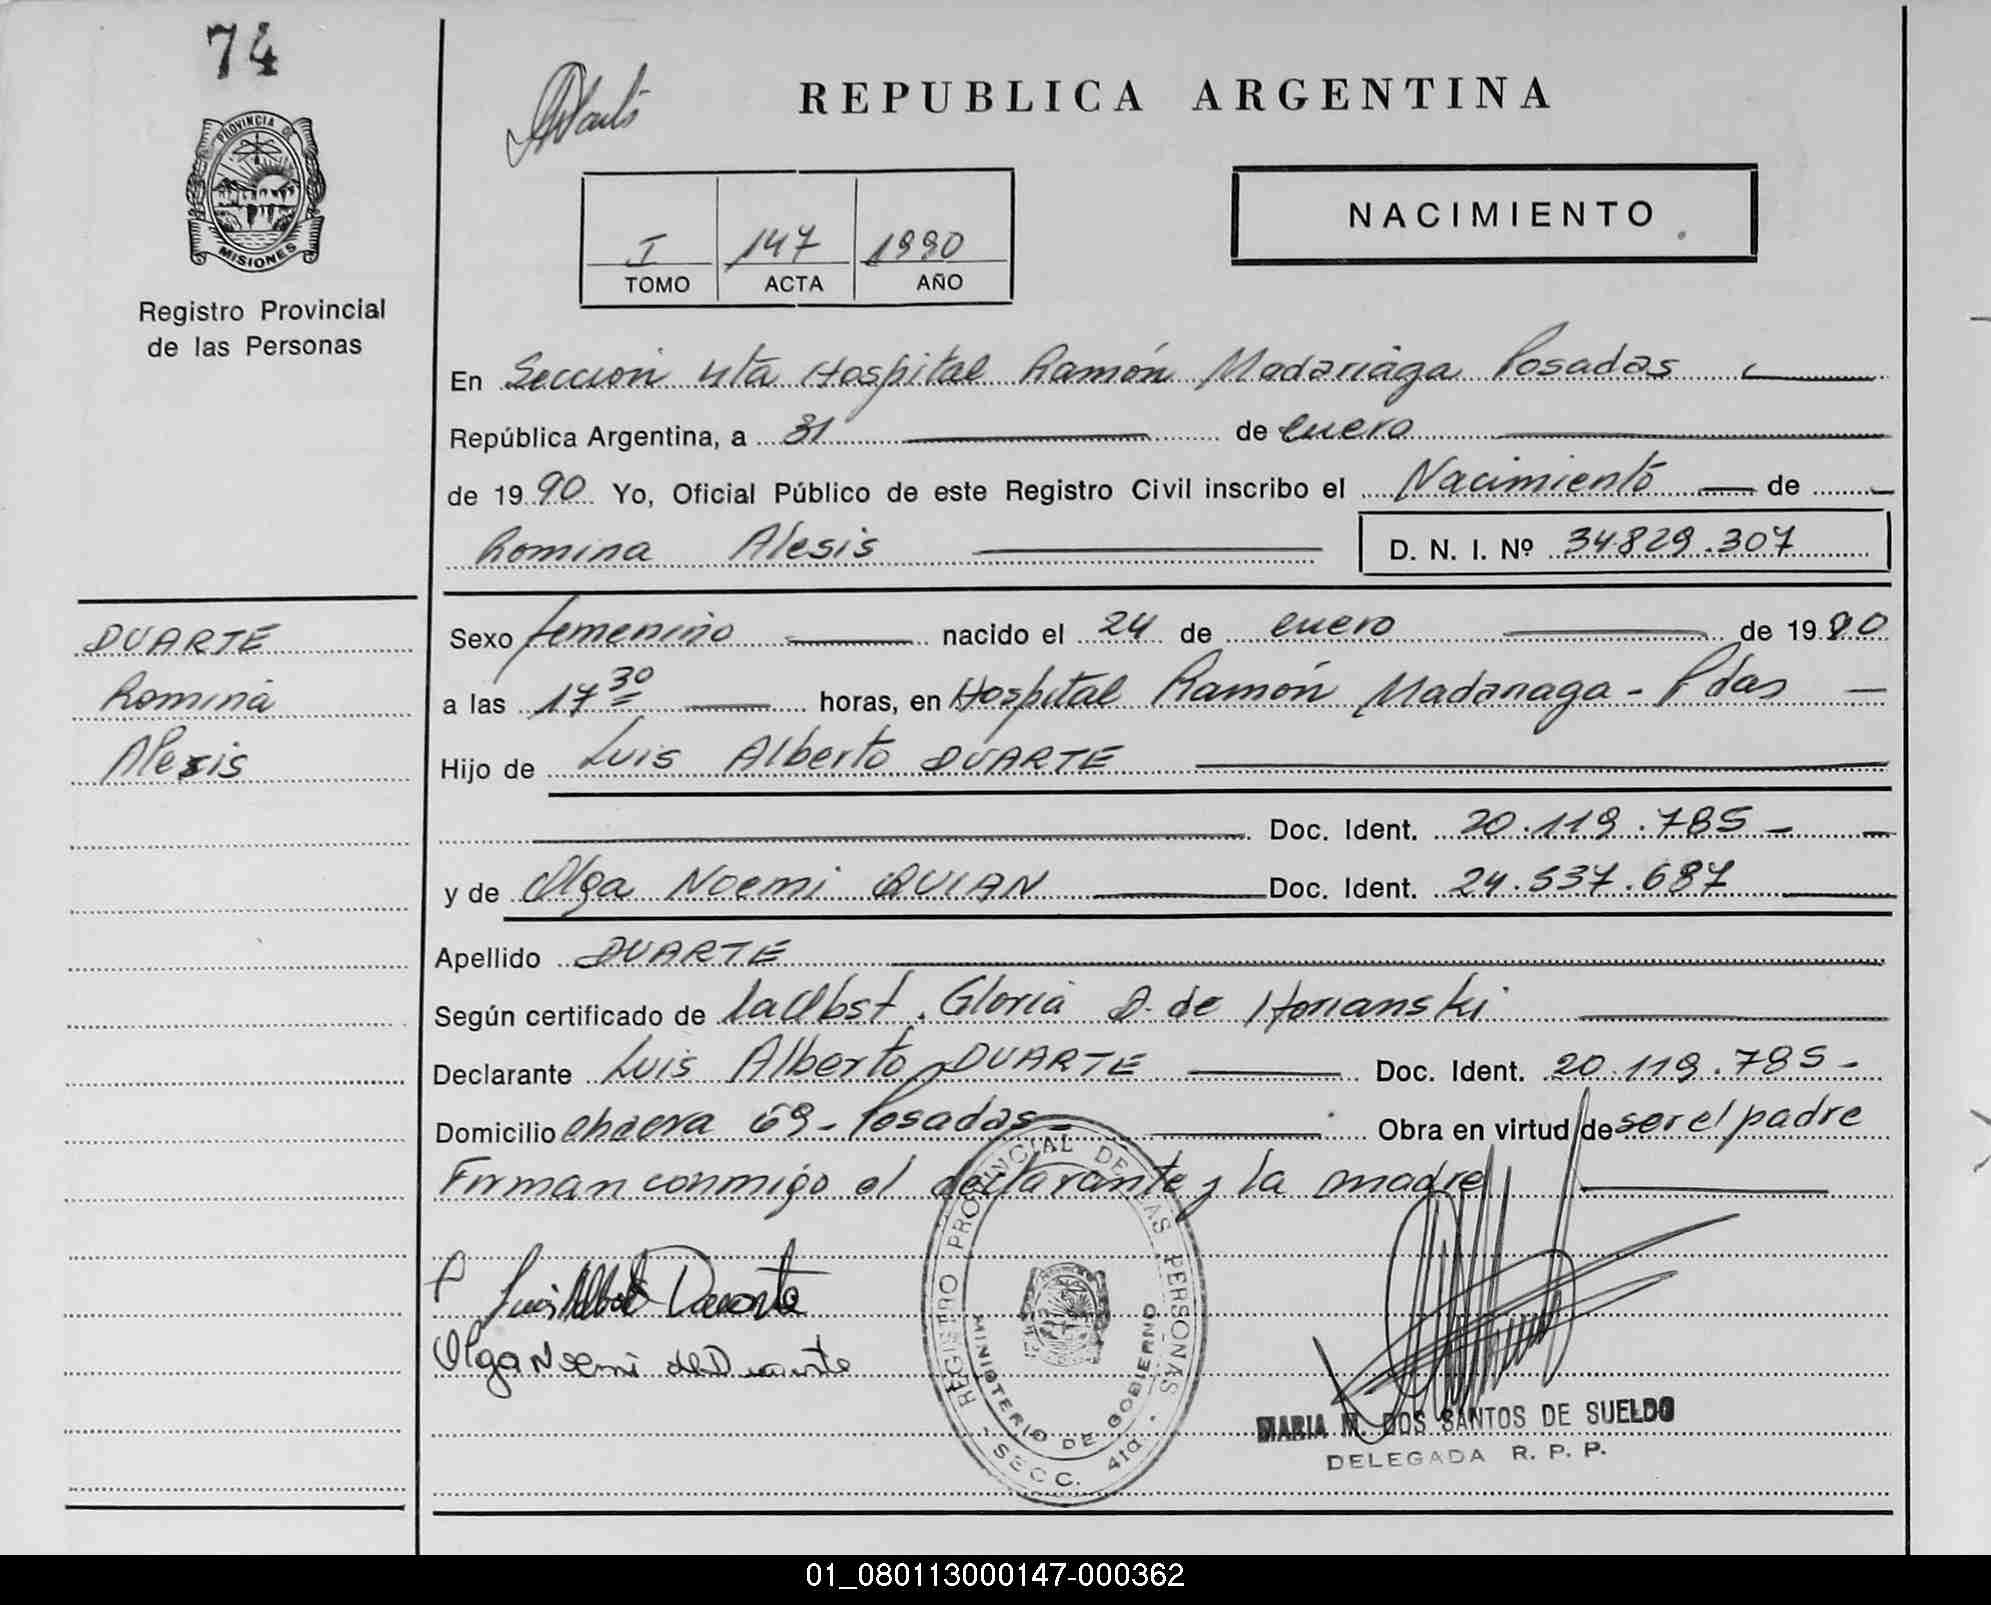 74
REPUBLICA ARGENTINA
PROVINCIA DE
MISIONES
Registro Provincial
de las Personas
I 147 1990
TOMO ACTA AÑO
NACIMIENTO
En Sección 4ta Hospital Ramón Madariaga Posadas
República Argentina, a 31 de enero
de 1990 Yo, Oficial Público de este Registro Civil inscribo el Nacimiento de
Romina Alesis D. N. I. Nº 34.829.307
DUARTE
Romina
Alexis
Sexo femenino nacido el 24 de enero de 1990
a las 17 30 horas, en Hospital Ramón Madariaga - Pdas
Hijo de Luis Alberto DUARTE
Doc. Ident. 20.119.785
y de Olga Noemi QUIAN Doc. Ident. 24.537.687
Apellido DUARTE
Según certificado de la Obst. Gloria D. de Horianski
Declarante Luis Alberto DUARTE Doc. Ident. 20.119.785
Domicilio chacra 69 - Posadas - Obra en virtud de ser el padre
Firman conmigo el declarante y la madre
Luis Alberto Duarte
Olga Noemi de Duarte
REGISTRO PROVINCIAL DE LAS PERSONAS
MINISTERIO DE GOBIERNO
- SECC. 4ta. -
MARIA M. DOS SANTOS DE SUELDO
DELEGADA R. P. P.
01_080113000147-000362